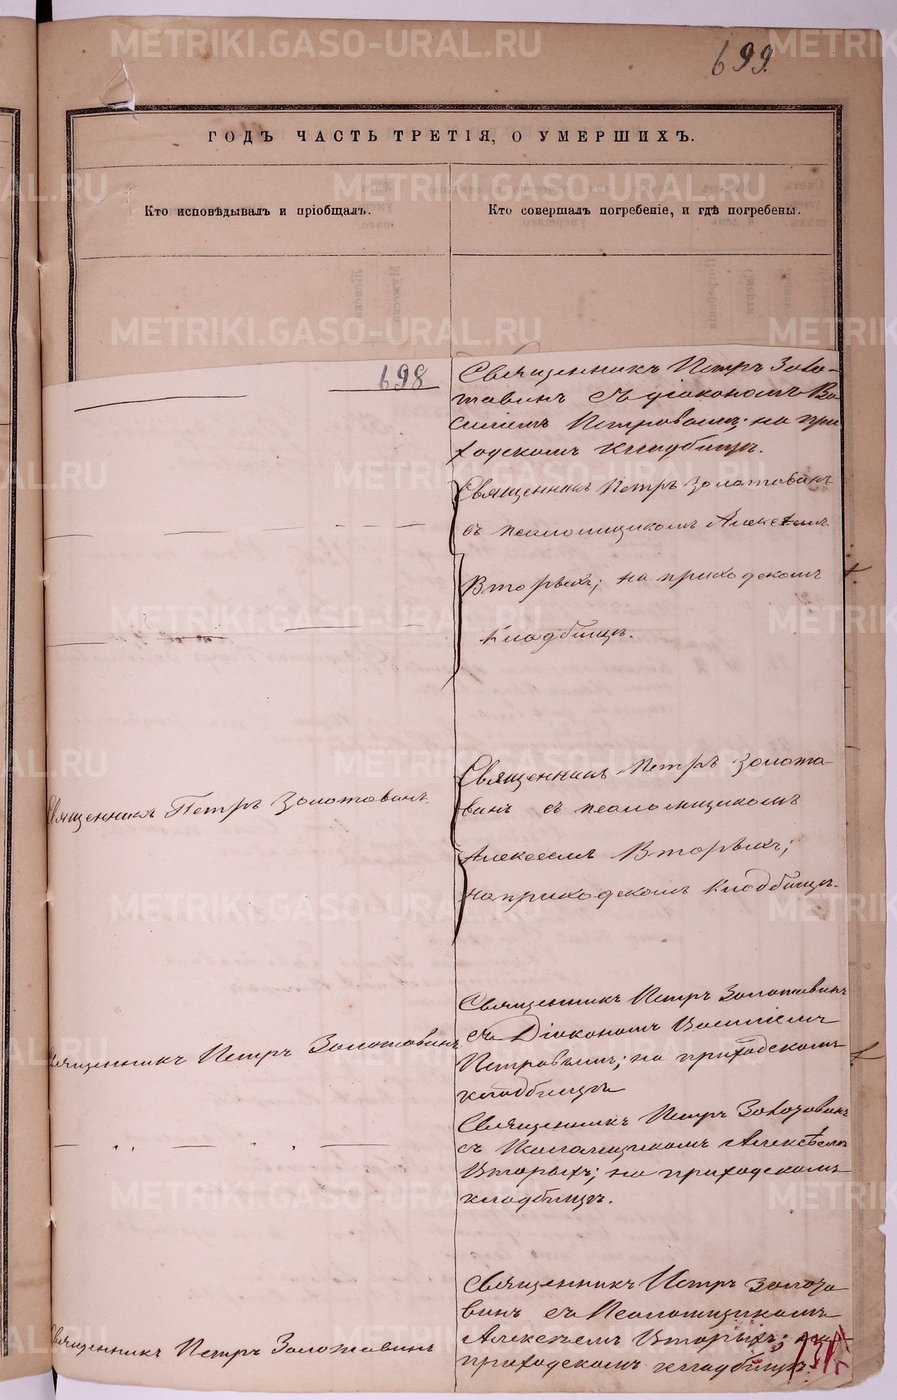 699.
ГОДЪ ЧАСТЬ ТРЕТІЯ, О УМЕРШИХЪ.
Кто исповѣдывалъ и пріобщалъ.
Кто совершалъ погребеніе, и гдѣ погребены.
698
Священникъ Петръ Золо-
тавинъ съ діакономъ Ва
силіемъ Петровымъ; на при
ходскомъ кладбищѣ.
Священникъ Петръ Золотавинъ
съ псаломщикомъ Алексѣемъ
Вторыхъ; на приходскомъ
кладбищѣ.
Священникъ Петръ Золотавинъ.
Священникъ Петръ Золота-
винъ съ псаломщикомъ
Алексеемъ Вторыхъ;
на приходскомъ кладбищѣ.
Священникъ Петръ Золотавинъ
Священникъ Петръ Золотавинъ
съ Діакономъ Василіемъ
Петровымъ; на приходскомъ
кладбищѣ
Священникъ Петръ Золотавинъ
съ Псаломщикомъ Алексѣемъ
Вторыхъ; на приходскомъ
кладбищѣ.
Священникъ Петръ Золотавинъ
Священникъ Петръ Золота
винъ съ Псаломщикомъ
Алексѣемъ Вторыхъ; на
приходскомъ кладбищѣ.
METRIKI.GASO-URAL.RU